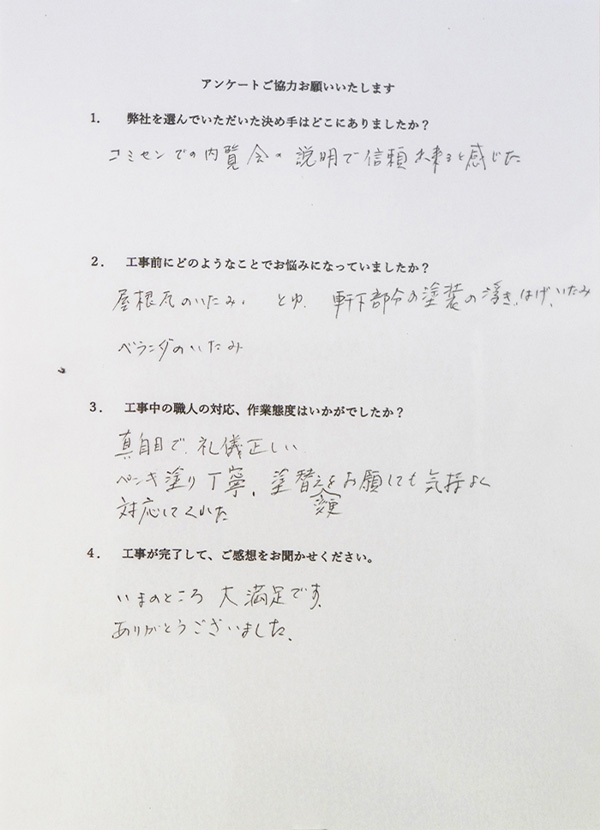 アンケートご協力お願いいたします
1. 弊社を選んでいただいた決め手はどこにありましたか？
コミセンでの内覧会の説明で信頼出来ると感じた
2. 工事前にどのようなことでお悩みになっていましたか？
屋根瓦のいたみ、とゆ、軒下部分の塗装の浮き、はげ、いたみ
ベランダのいたみ
3. 工事中の職人の対応、作業態度はいかがでしたか？
真面目で、礼儀正しい
ペンキ塗り丁寧、塗替え変更をお願いしても気持よく
対応してくれた
4. 工事が完了して、ご感想をお聞かせください。
いまのところ大満足です。
ありがとうございました。